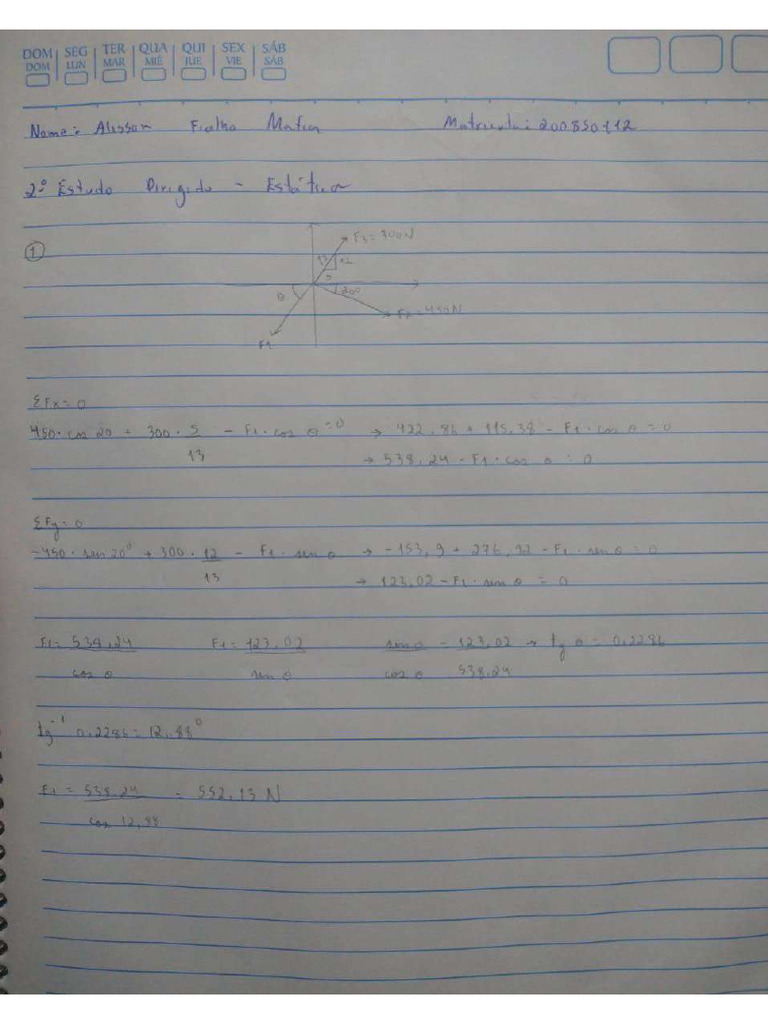 DOM SEG TER QUA QUI SEX SÁB
DOM LUN MAR MIÉ JUE VIE SÁB
Nome: Alisson Fialho Matrícula: 200850112
2º Estudo Dirigido - Estática
1
F3 = 300N
13 12
5
θ 20º
F2 = 450N
F1
ΣFx = 0
450 · cos 20 + 300 · 5/13 - F1 · cos θ = 0 → 422,86 + 115,38 - F1 · cos θ = 0
→ 538,24 - F1 · cos θ = 0
ΣFy = 0
-450 · sen 20º + 300 · 12/13 - F1 · sen θ → -153,9 + 276,92 - F1 · sen θ = 0
→ 123,02 - F1 · sen θ = 0
F1 = 538,24/cos θ F1 = 123,02/sen θ sen θ/cos θ = 123,02/538,24 → tg θ = 0,2286
tg⁻¹ 0,2286 = 12,88º
F1 = 538,24/cos 12,88 = 552,13 N